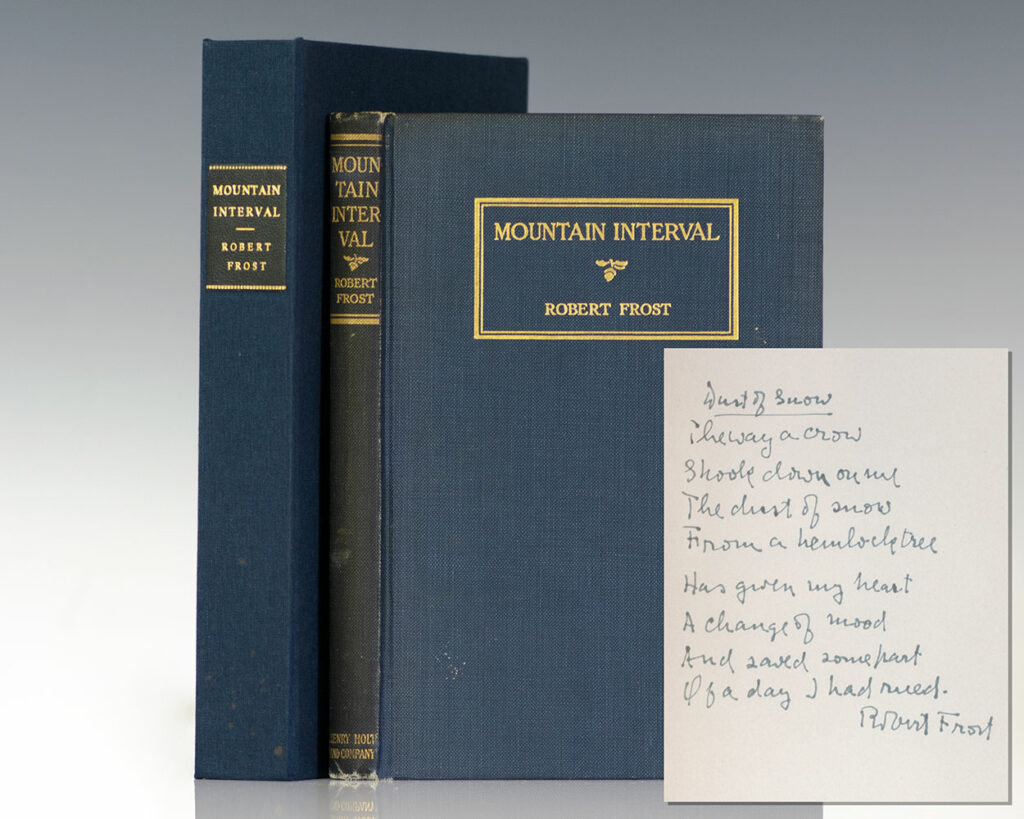 MOUNTAIN
INTERVAL
ROBERT
FROST
MOUN
TAIN
INTER
VAL
ROBERT
FROST
HENRY HOLT
AND COMPANY
MOUNTAIN INTERVAL
ROBERT FROST
Dust of Snow
The way a crow
Shook down on me
The dust of snow
From a hemlock tree
Has given my heart
A change of mood
And saved some part
Of a day I had rued.
Robert Frost